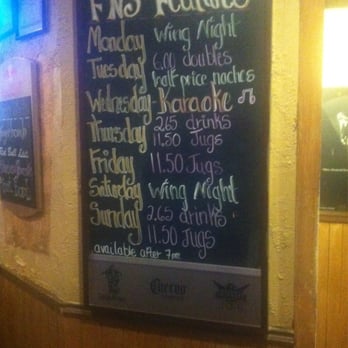 Monday Wing Night
Tuesday 6.00 doubles
half price nachos
Wednesday-Karaoke
Thursday 2.65 drinks
11.50 Jugs
Friday 11.50 Jugs
Saturday Wing Night
Sunday 2.65 drinks
11.50 Jugs
available after 7pm
Cuervo